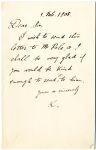 Feb. 1908.
Dear Mr.
I wish to send this
letter to Mr Pole, & I
shall be very glad if
you would be kind
enough to send to him
yours v. sincerely